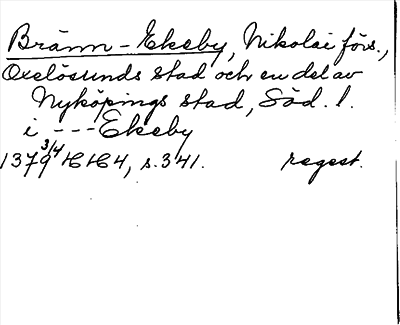 Bränn-Ekeby, Nikolai förs.,
Oxelösunds stad och en del av
Nyköpings stad, Söd. l.
i --- Ekeby
1379 3/4 HH 4, s. 341. regest.